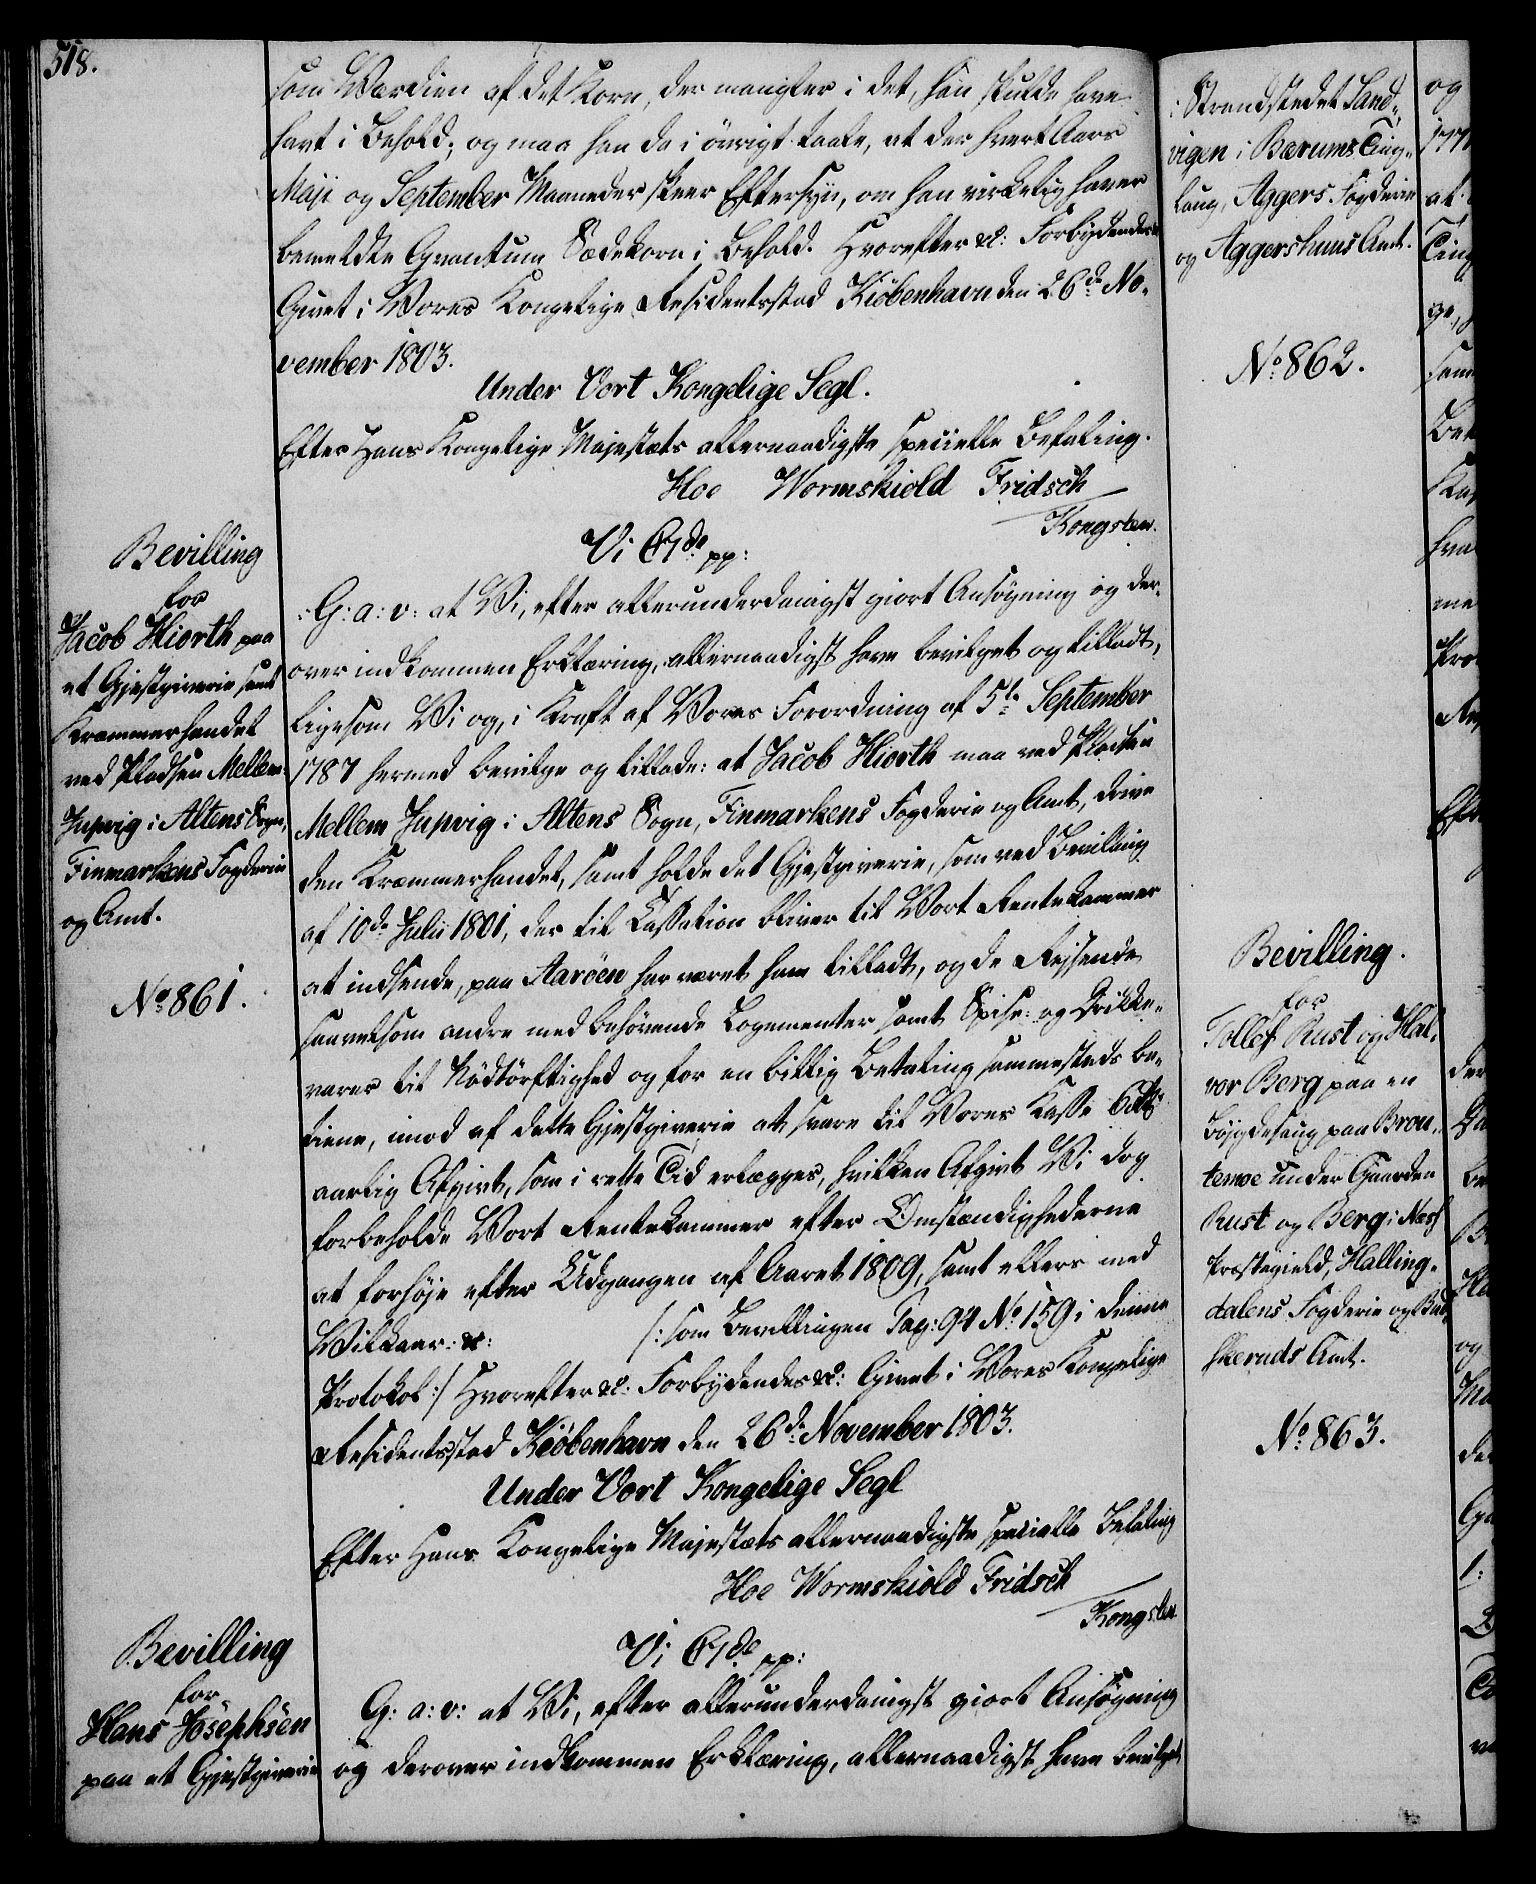 518.
som Værdien af det Korn, der mangler i det, han skulde have
havt i Behold; og maa han da i övrigt taale, at der hvert Aars
Maji og September Maaneder skeer Eftersyn, om han virkelig haver
bemeldte Qvantum Sædekorn i Behold. Hvorefter &c: Forbydendes &
Givet i Vores Kongelige Residentsstad Kiöbenhavn den 26de No-
vember 1803.
Under Vort Kongelige Segl.
Efter Hans Kongelige Majestæts allernaadigste specielle Befaling.
Hoe Wormskiold Fridsch
Kongslew.
Bevilling
for
Jacob Hiorth paa
et Gjestgiverie samt
Kræmmerhandel
ved Pladsen Mellem
Jupvig i Altens Sogn,
Finmarkens Fogderie
og Amt.
No 861.
Vi C7de pp:
G: a: v: at Vi, efter allerunderdanigst giort Ansögning og der-
over indkommen Erklæring, allernaadigst have bevilget og tilladt,
ligesom Vi og, i Kraft af Vores Forordning af 5te September
1787 hermed bevilge og tillade: at Jacob Hiorth maa ved Pladsen
Mellem Jupvig i Altens Sogn, Finmarkens Fogderie og Amt, drive
den Kræmmerhandel, samt holde det Gjestgiverie, som ved Bevilling
af 10de Julii 1801, der til Cassation bliver til Vort Rentekammer
at indsende, paa Aaröen har været ham tilladt, og de Reisende
saavelsom andre med behövende Logementer samt Spise- og Drikke-
varer til Nödtörftighed og for en billig Betaling sammesteds be-
tiene, imod af dette Gjestgiverie at svare til Vores Kasse 6 rd
aarlig Afgivt, som i rette Tid erlægges, hvilken Afgivt Vi dog
forbeholde Vort Rentekammer efter Omstændighederne
at forhöje efter Udgangen af Aaret 1809, samt ellers med
Vilkaar: &: /: som Bevillingen Pag: 94 No 159 i denne
Protokol :/ Hvorefter &c: Forbydendes &c: Givet i Vores Kongelige
Residentsstad Kiöbenhavn den 26de November 1803.
Under Vort Kongelige Segl
Efter Hans Kongelige Majestæts allernaadigste specielle Befaling
Hoe Wormskiold Fridsch
Kongslew
Bevilling
for
Hans Josephsen
paa et Gjestgiverie
Vi C7de pp:
G: a: v: at Vi, efter allerunderdanigst giort Ansögning
og derover indkommen Erklæring, allernaadigst have bevilget
i Strandstedet Sand-
vigen i Bærums Ting-
laug, Aggers Fogderie
og Aggershuus Amt.
No 862.
Bevilling.
for
Tollef Rust og Hal-
vor Berg paa en
Böjgdesaug paa Brou-
temoe under Gaarden
Rust og Berg i Næss
Præstegield, Halling-
dalens Fogderie og Bu-
skeruds Amt.
No 863.